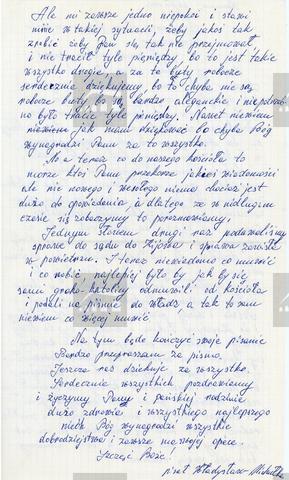 Ale mi zawsze jedno niepokoi i stawi
mnie w takiej sytuacji, żeby jakoś tak
zrobić żeby Pan się tak nie przejmował
i nie tracił tyle pieniędzy, bo to jest takie
wszystko drogie, a za te buty robocze
serdecznie dziękujemy bo to chyba nie są
robocze buty są bardzo eleganckie i niepotrzeb
no było tracić tyle pieniędzy. Nawet niewiem
niewiem jak mam dziękować bo chyba Bóg
wynagrodzi Panu za to wszystko.
No a teraz co do naszego kościoła to
może ktoś Panu przekaże jakieś wiadomości
ale nic nowego i wesołego niema chociaż jest
dużo do opowiedzenia, a dlatego że w niedługim
czasie się zobaczymy to porozmawiamy.
Jednym słowem drugi raz podawaliśmy
sprawę do sądu do Kijowa i sprawa zawisła
w powietrzu. I teraz niewiadomo co mówić
i co robić, najlepiej było by jak by się
sami greko-katolicy odmówili od kościoła
i podali na piśmie do władz, a tak to sam
niewiem co więcej mówić
Na tym będę kończyć swoje pisanie
Bardzo przepraszam za pismo.
Jeszcze raz dziękuję za wszystko.
Serdecznie wszystkich pozdrawiamy
i życzymy Panu i pańskiej rodzinie
dużo zdrowia i wszystkiego najlepszego
niech Bóg wynagrodzi wszystkie
dobrodziejstwa i zawsze ma swojej opiece.
Szczęść Boże!
Władysław